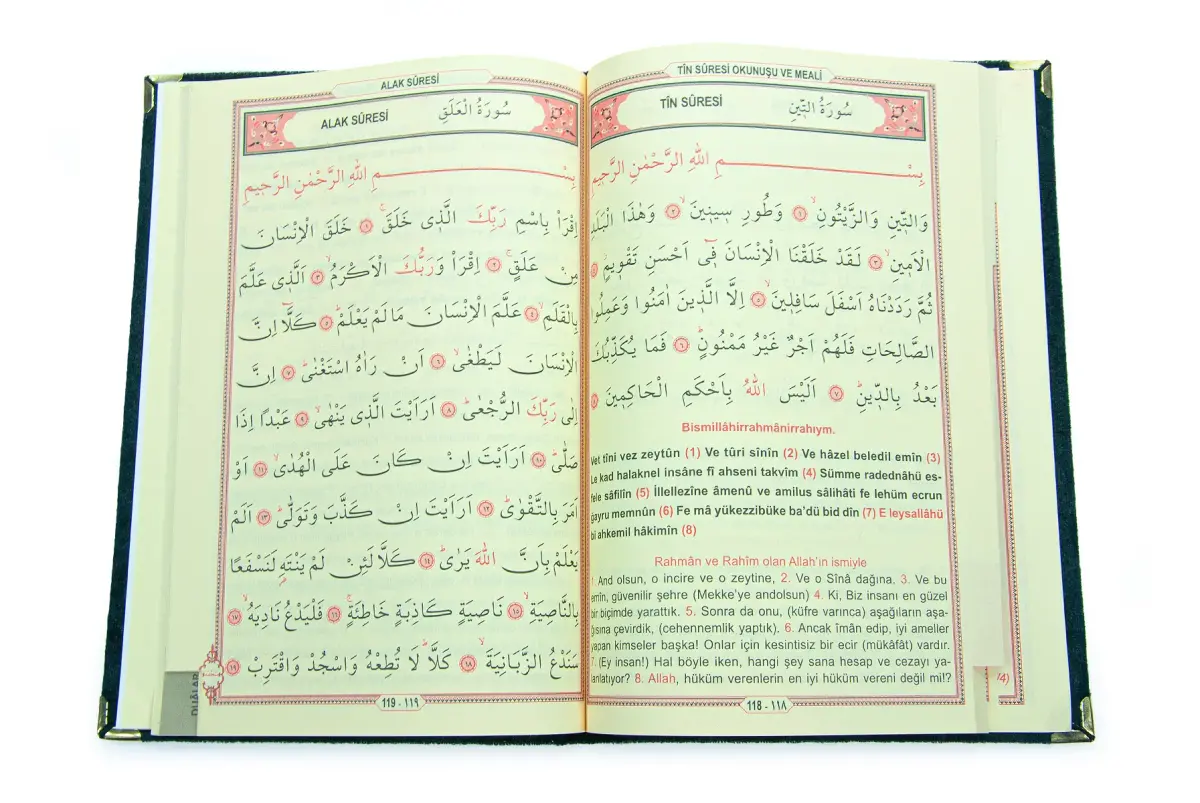 TÎN SÛRESİ OKUNUŞU VE MEALİ
TÎN SÛRESİ سُورَةُ التّ۪ينِ
بِسْمِ اللّٰهِ الرَّحْمٰنِ الرَّح۪يمِ
وَالتّ۪ينِ وَالزَّيْتُونِۙ ﴿١﴾ وَطُورِ س۪ين۪ينَۙ ﴿٢﴾ وَهٰذَا الْبَلَدِ
الْاَم۪ينِۙ ﴿٣﴾ لَقَدْ خَلَقْنَا الْاِنْسَانَ ف۪ٓي اَحْسَنِ تَقْو۪يمٍۘ ﴿٤﴾
ثُمَّ رَدَدْنَاهُ اَسْفَلَ سَافِل۪ينَۙ ﴿٥﴾ اِلَّا الَّذ۪ينَ اٰمَنُوا وَعَمِلُوا
الصَّالِحَاتِ فَلَهُمْ اَجْرٌ غَيْرُ مَمْنُونٍۜ ﴿٦﴾ فَمَا يُكَذِّبُكَ
بَعْدُ بِالدّ۪ينِۜ ﴿٧﴾ اَلَيْسَ اللّٰهُ بِاَحْكَمِ الْحَاكِم۪ينَ ﴿٨﴾
Bismillâhirrahmânirrahıym.
Vet tîni vez zeytûn (1) Ve tûri sînîn (2) Ve hâzel beledil emîn (3)
Le kad halaknel insâne fî ahseni takvîm (4) Sümme radednâhü es-
fele sâfilîn (5) İllellezîne âmenû ve amilus sâlihâti fe lehüm ecrun
gayru memnûn (6) Fe mâ yükezzibüke ba'dü bid dîn (7) E leysallâhü
bi ahkemil hâkimîn (8)
Rahmân ve Rahîm olan Allah'ın ismiyle
1. And olsun, o incire ve o zeytine, 2. Ve o Sînâ dağına. 3. Ve bu
emîn, güvenilir şehre (Mekke'ye andolsun) 4. Ki, Biz insanı en güzel
bir biçimde yarattık. 5. Sonra da onu, (küfre varınca) aşağıların aşa-
ğısına çevirdik, (cehennemlik yaptık). 6. Ancak îmân edip, iyi ameller
yapan kimseler başka! Onlar için kesintisiz bir ecir (mükâfât) vardır.
7. (Ey insan!) Hal böyle iken, hangi şey sana hesap ve cezayı ya-
lanlatıyor? 8. Allah, hüküm verenlerin en iyi hüküm vereni değil mi!?
118 - ١١٨
4)
ALAK SÛRESİ
ALAK SÛRESİ سُورَةُ الْعَلَقِ
بِسْمِ اللّٰهِ الرَّحْمٰنِ الرَّح۪يمِ
اِقْرَأْ بِاسْمِ رَبِّكَ الَّذ۪ي خَلَقَۚ ﴿١﴾ خَلَقَ الْاِنْسَانَ
مِنْ عَلَقٍۚ ﴿٢﴾ اِقْرَأْ وَرَبُّكَ الْاَكْرَمُۙ ﴿٣﴾ اَلَّذ۪ي عَلَّمَ
بِالْقَلَمِۙ ﴿٤﴾ عَلَّمَ الْاِنْسَانَ مَا لَمْ يَعْلَمْۜ ﴿٥﴾ كَلَّٓا اِنَّ
الْاِنْسَانَ لَيَطْغٰىۙ ﴿٦﴾ اَنْ رَاٰهُ اسْتَغْنٰىۜ ﴿٧﴾ اِنَّ
اِلٰى رَبِّكَ الرُّجْعٰىۜ ﴿٨﴾ اَرَاَيْتَ الَّذ۪ي يَنْهٰىۙ ﴿٩﴾ عَبْدًا اِذَا
صَلّٰىۜ ﴿١٠﴾ اَرَاَيْتَ اِنْ كَانَ عَلَى الْهُدٰىۙ ﴿١١﴾ اَوْ
اَمَرَ بِالتَّقْوٰىۜ ﴿١٢﴾ اَرَاَيْتَ اِنْ كَذَّبَ وَتَوَلّٰىۜ ﴿١٣﴾ اَلَمْ
يَعْلَمْ بِاَنَّ اللّٰهَ يَرٰىۜ ﴿١٤﴾ كَلَّا لَئِنْ لَمْ يَنْتَهِ لَنَسْفَعًا
بِالنَّاصِيَةِۙ ﴿١٥﴾ نَاصِيَةٍ كَاذِبَةٍ خَاطِئَةٍۚ ﴿١٦﴾ فَلْيَدْعُ نَادِيَهُۙ ﴿١٧﴾
سَنَدْعُ الزَّبَانِيَةَۙ ﴿١٨﴾ كَلَّاۜ لَا تُطِعْهُ وَاسْجُدْ وَاقْتَرِبْ ﴿١٩﴾
119 - ١١٩
DUÂLAR